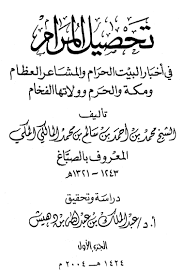 تحصيل المرام
في أخبار البيت الحرام والمشاعر العظام
ومكة والحرم وولاتها الفخام
تأليف
الشيخ محمد بن أحمد بن سالم بن محمد المالكي المكي
المعروف بالصباغ
١٢٤٣ - ١٣٢١هـ
دراسة وتحقيق
أ. د/ عبد الملك بن عبد الله بن دهيش
الجزء الأول
١٤٢٤هـ - ٢٠٠٤م